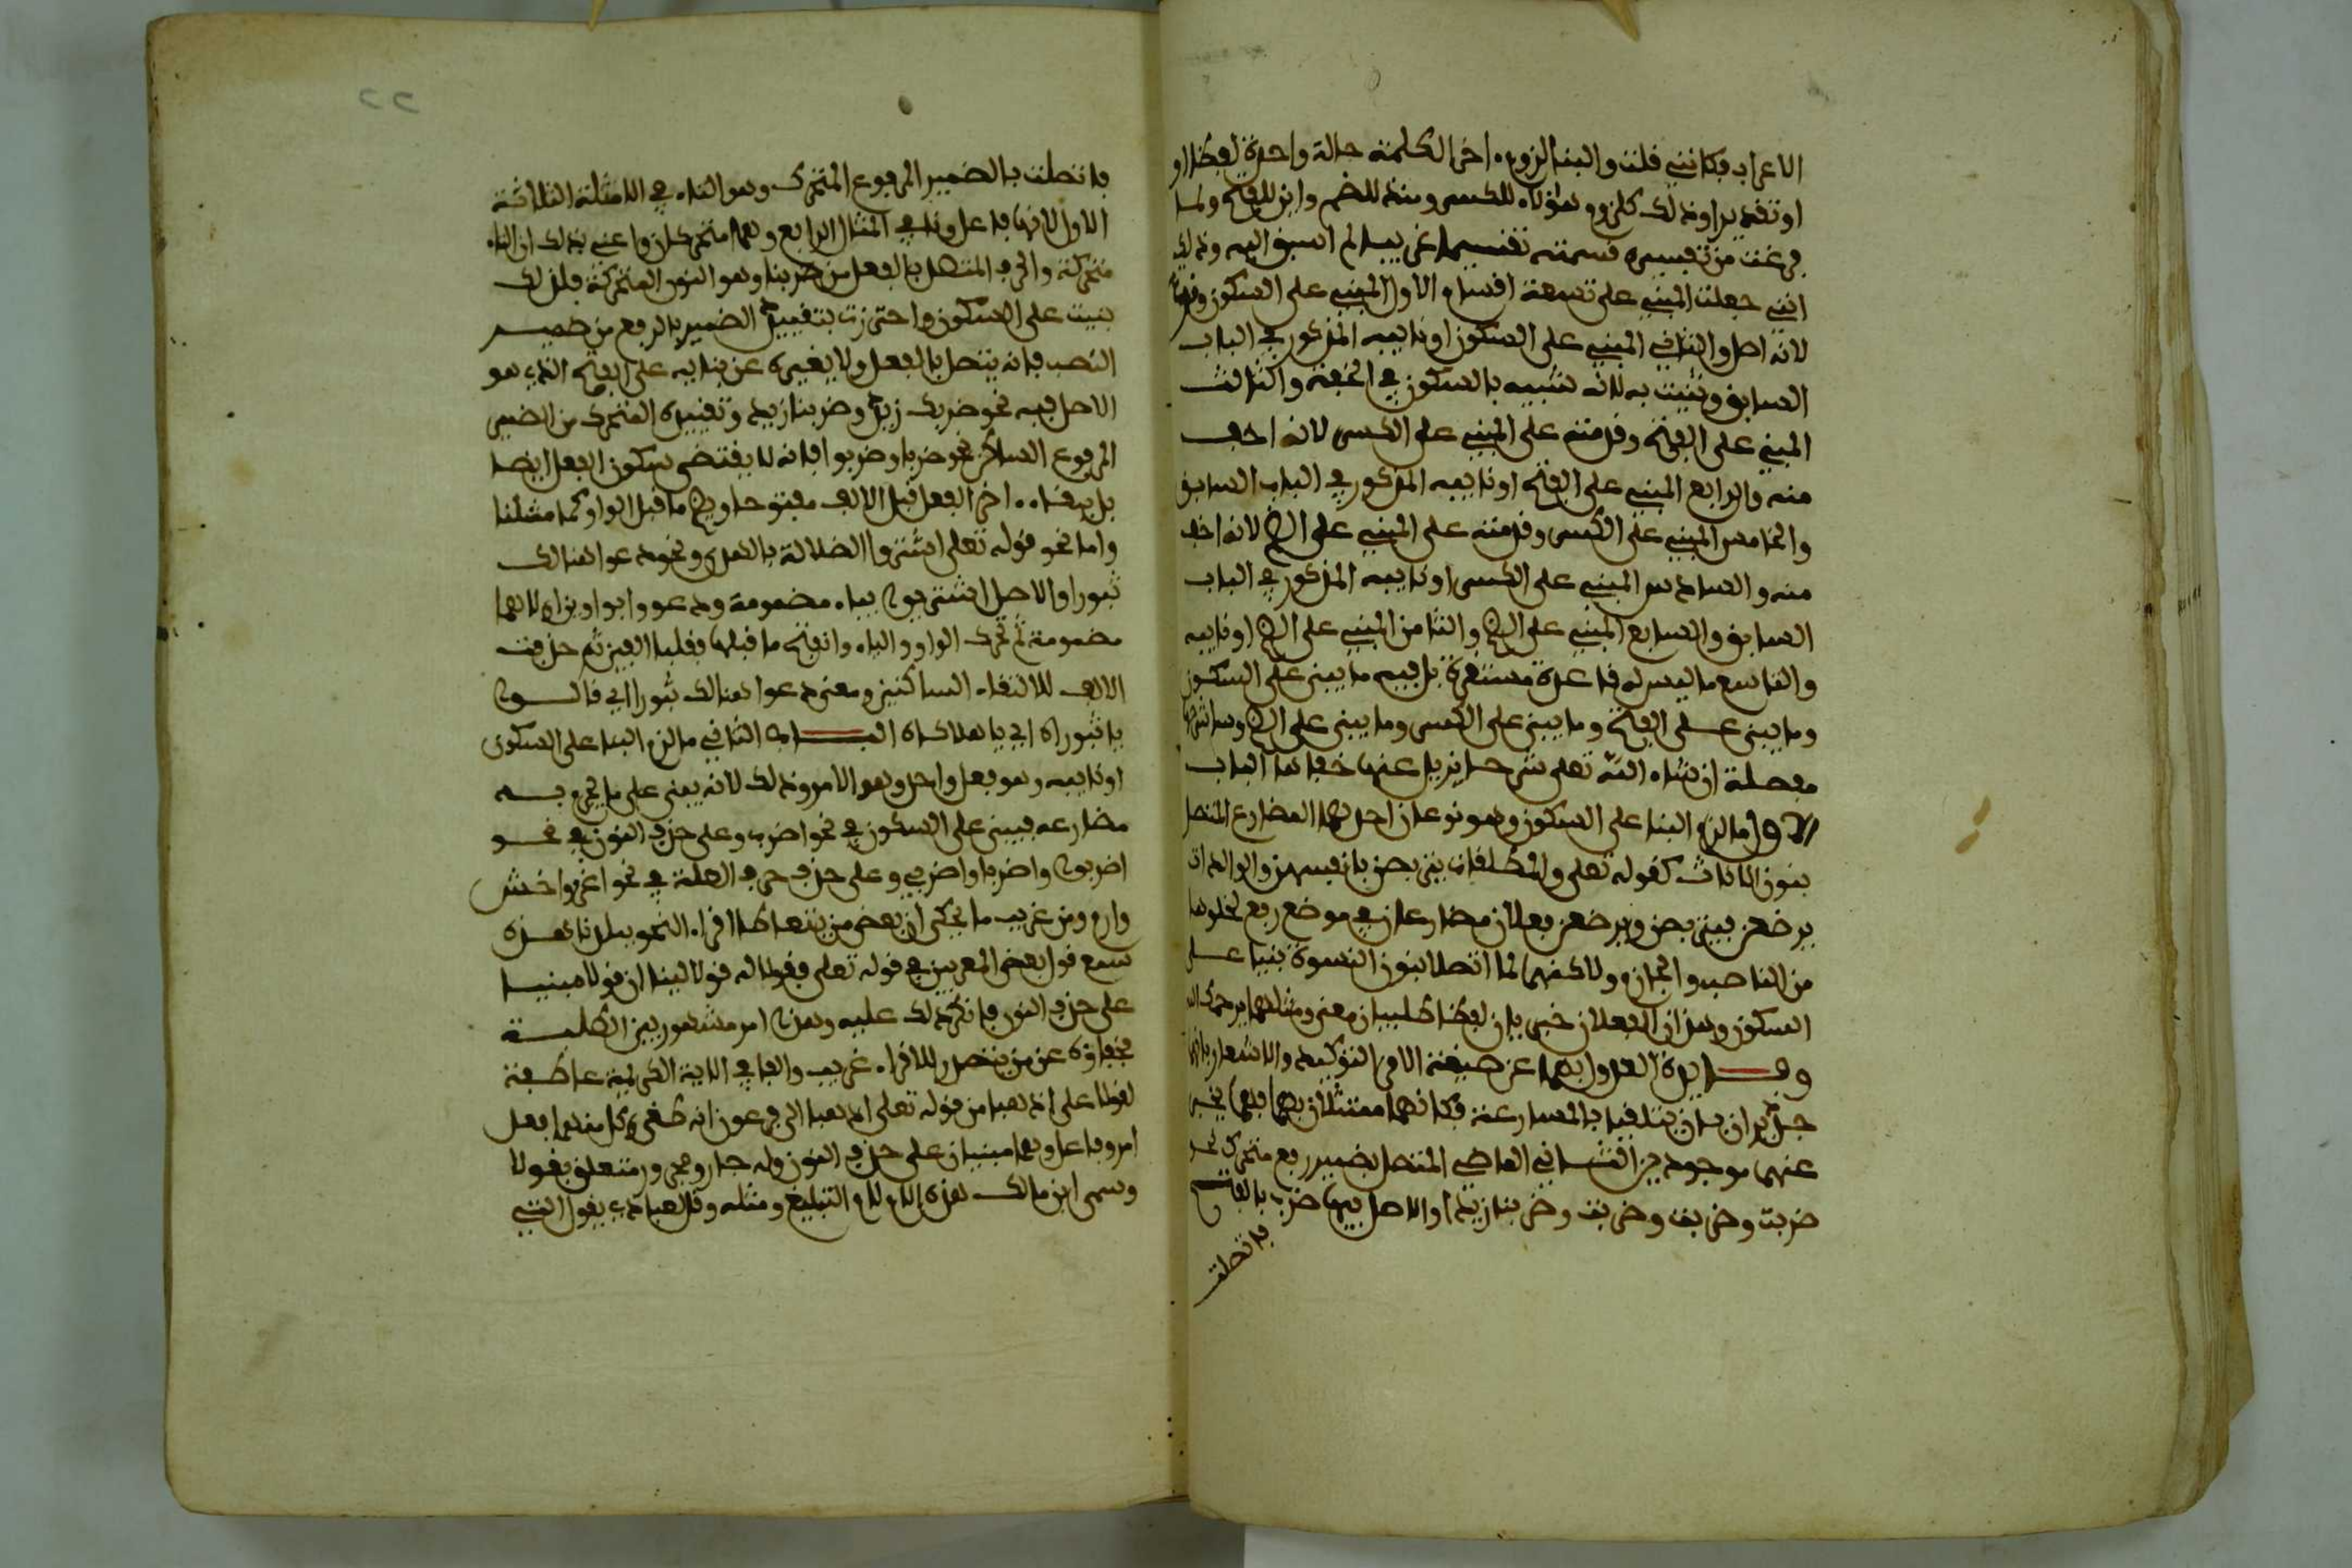 الاعراب فكانني قلت والبنا لزوم اخر الكلمة حالة واحدة لفظا او
او تقديرا وذلك كلزوم هؤلاء للكسر ومنذ للضم واين للفتح ولما
فرغت من تفسيره قسمته تقسيما غريبا لم اسبق اليه وذلك
انني جعلت المبني على تسعة اقسام الاول المبني على السكون وقدمته
لانه اصل والثاني المبني على السكون او نايبه المذكور في الباب
السابق وثنيت به لانه شبيه بالسكون في الخفة والثالث
المبني على الفتح وقدمته على المبني على الكسر لانه اخف
منه والرابع المبني على الفتح او نايبه المذكور في الباب السابق
والخامس المبني على الكسر وقدمته على المبني على الضم لانه اخف
منه والسادس المبني على الكسر او نايبه المذكور في الباب
السابق والسابع المبني على الضم والثامن المبني على الضم او نايبه
والتاسع ما ليس له قاعدة مستقرة بل فيه ما يبنى على السكون
وما يبنى على الفتح وما يبنى على الكسر وما يبنى على الضم وساشرحها
مفصلة ان شاء الله تعلى شرحا يزيل عنها خفاها الباب
الاول ما لزم البنا على السكون وهو نوعان احدهما المضارع المتصل
بنون الاناث كقوله تعلى والمطلقات يتربصن بانفسهن والوالدات
يرضعن فيتربصن ويرضعن فعلان مضارعان في موضع رفع لخلوهما
من الناصب والجازم ولاكنهما لما اتصلا بنون النسوة بنيا على
السكون وهذان الفعلان خبريان لفظا طلبيان معنى ومثلهما يرحمك الله
وفايدة العدول بهما عن صيغة الامر التوكيد والاشعار بانهما
جديران بان يتلقيا بالمسارعة فكانهما ممتثلان بهما فهما يخبر
عنهما موجودين الثاني الماضي المتصل بضمير رفع متحرك نحو
ضربت وضربت وضربت وضربنا زيدا والاصل فيها ضرب بالفتح
فاتصلت
٢٢
فاتصلت بالضمير المرفوع المتحرك وهو التاء في الامثلة الثلاثة
الاول لانها فاعل ونا في المثال الرابع وهما متحركان واعني بذلك ان التاء
متحركة والحرف المتصل بالفعل من ضربنا وهو النون المتحركة فلذلك
بنيت على السكون واحترزت بتقييد الضمير بالرفع من ضمير
النصب فانه يتصل بالفعل ولا يغيره عن بنايه على الفتح الذي هو
الاصل فيه نحو ضربك زيد وضربنا زيد وتقييده المتحرك من الضمير
المرفوع الساكن نحو ضربا وضربوا فانه لا يقتضي سكون الفعل ايضا
بل يبقاء اخر الفعل قبل الالف مفتوحا ويضم ما قبل الواو كما مثلنا
واما نحو قوله تعلى اشتروا الضلالة بالهدى ونحو دعوا هنالك
ثبورا والاصل اشتريوا بياء مضمومة ودعووا بواوين اولاهما
مضمومة ثم تحرك الواو والياء وانفتح ما قبلها فقلبا الفين ثم حذفت
الالف لالتقاء الساكنين ومعنى دعوا هنالك ثبورا اي قالوا
يا ثبوراه اي يا هلاكاه الباب الثاني ما لزم البنا على السكون
او نايبه وهو فعل واحد وهو الامر وذلك لانه يبنى على ما يجزم به
مضارعه فيبنى على السكون في نحو اضرب وعلى حذف النون في نحو
اضربوا واضربا واضربي وعلى حذف حرف العلة في نحو اغز واخش
وارم ومن غريب ما يحكى ان بعض من يتعاطا اقراء النحو ببلدنا هذه
سمع قول بعض المعربين في قوله تعلى فقولا له قولا لينا ان قولا مبني
على حذف النون فانكر ذلك عليه وهذا امر مشهور بين الطلبة
فخفاؤه عن من يتصدر للاقراء غريب والفا في الاية الكريمة عاطفة
لقولا على اذهبا من قوله تعلى اذهبا الى فرعون انه طغى وكل منهما فعل
امر وفاعل وهما مبنيان على حذف النون وله جار ومجرور متعلق بقولا
وسمى ابن مالك هذه اللام لام التبليغ ومثله وقل لعبادي يقولوا التي